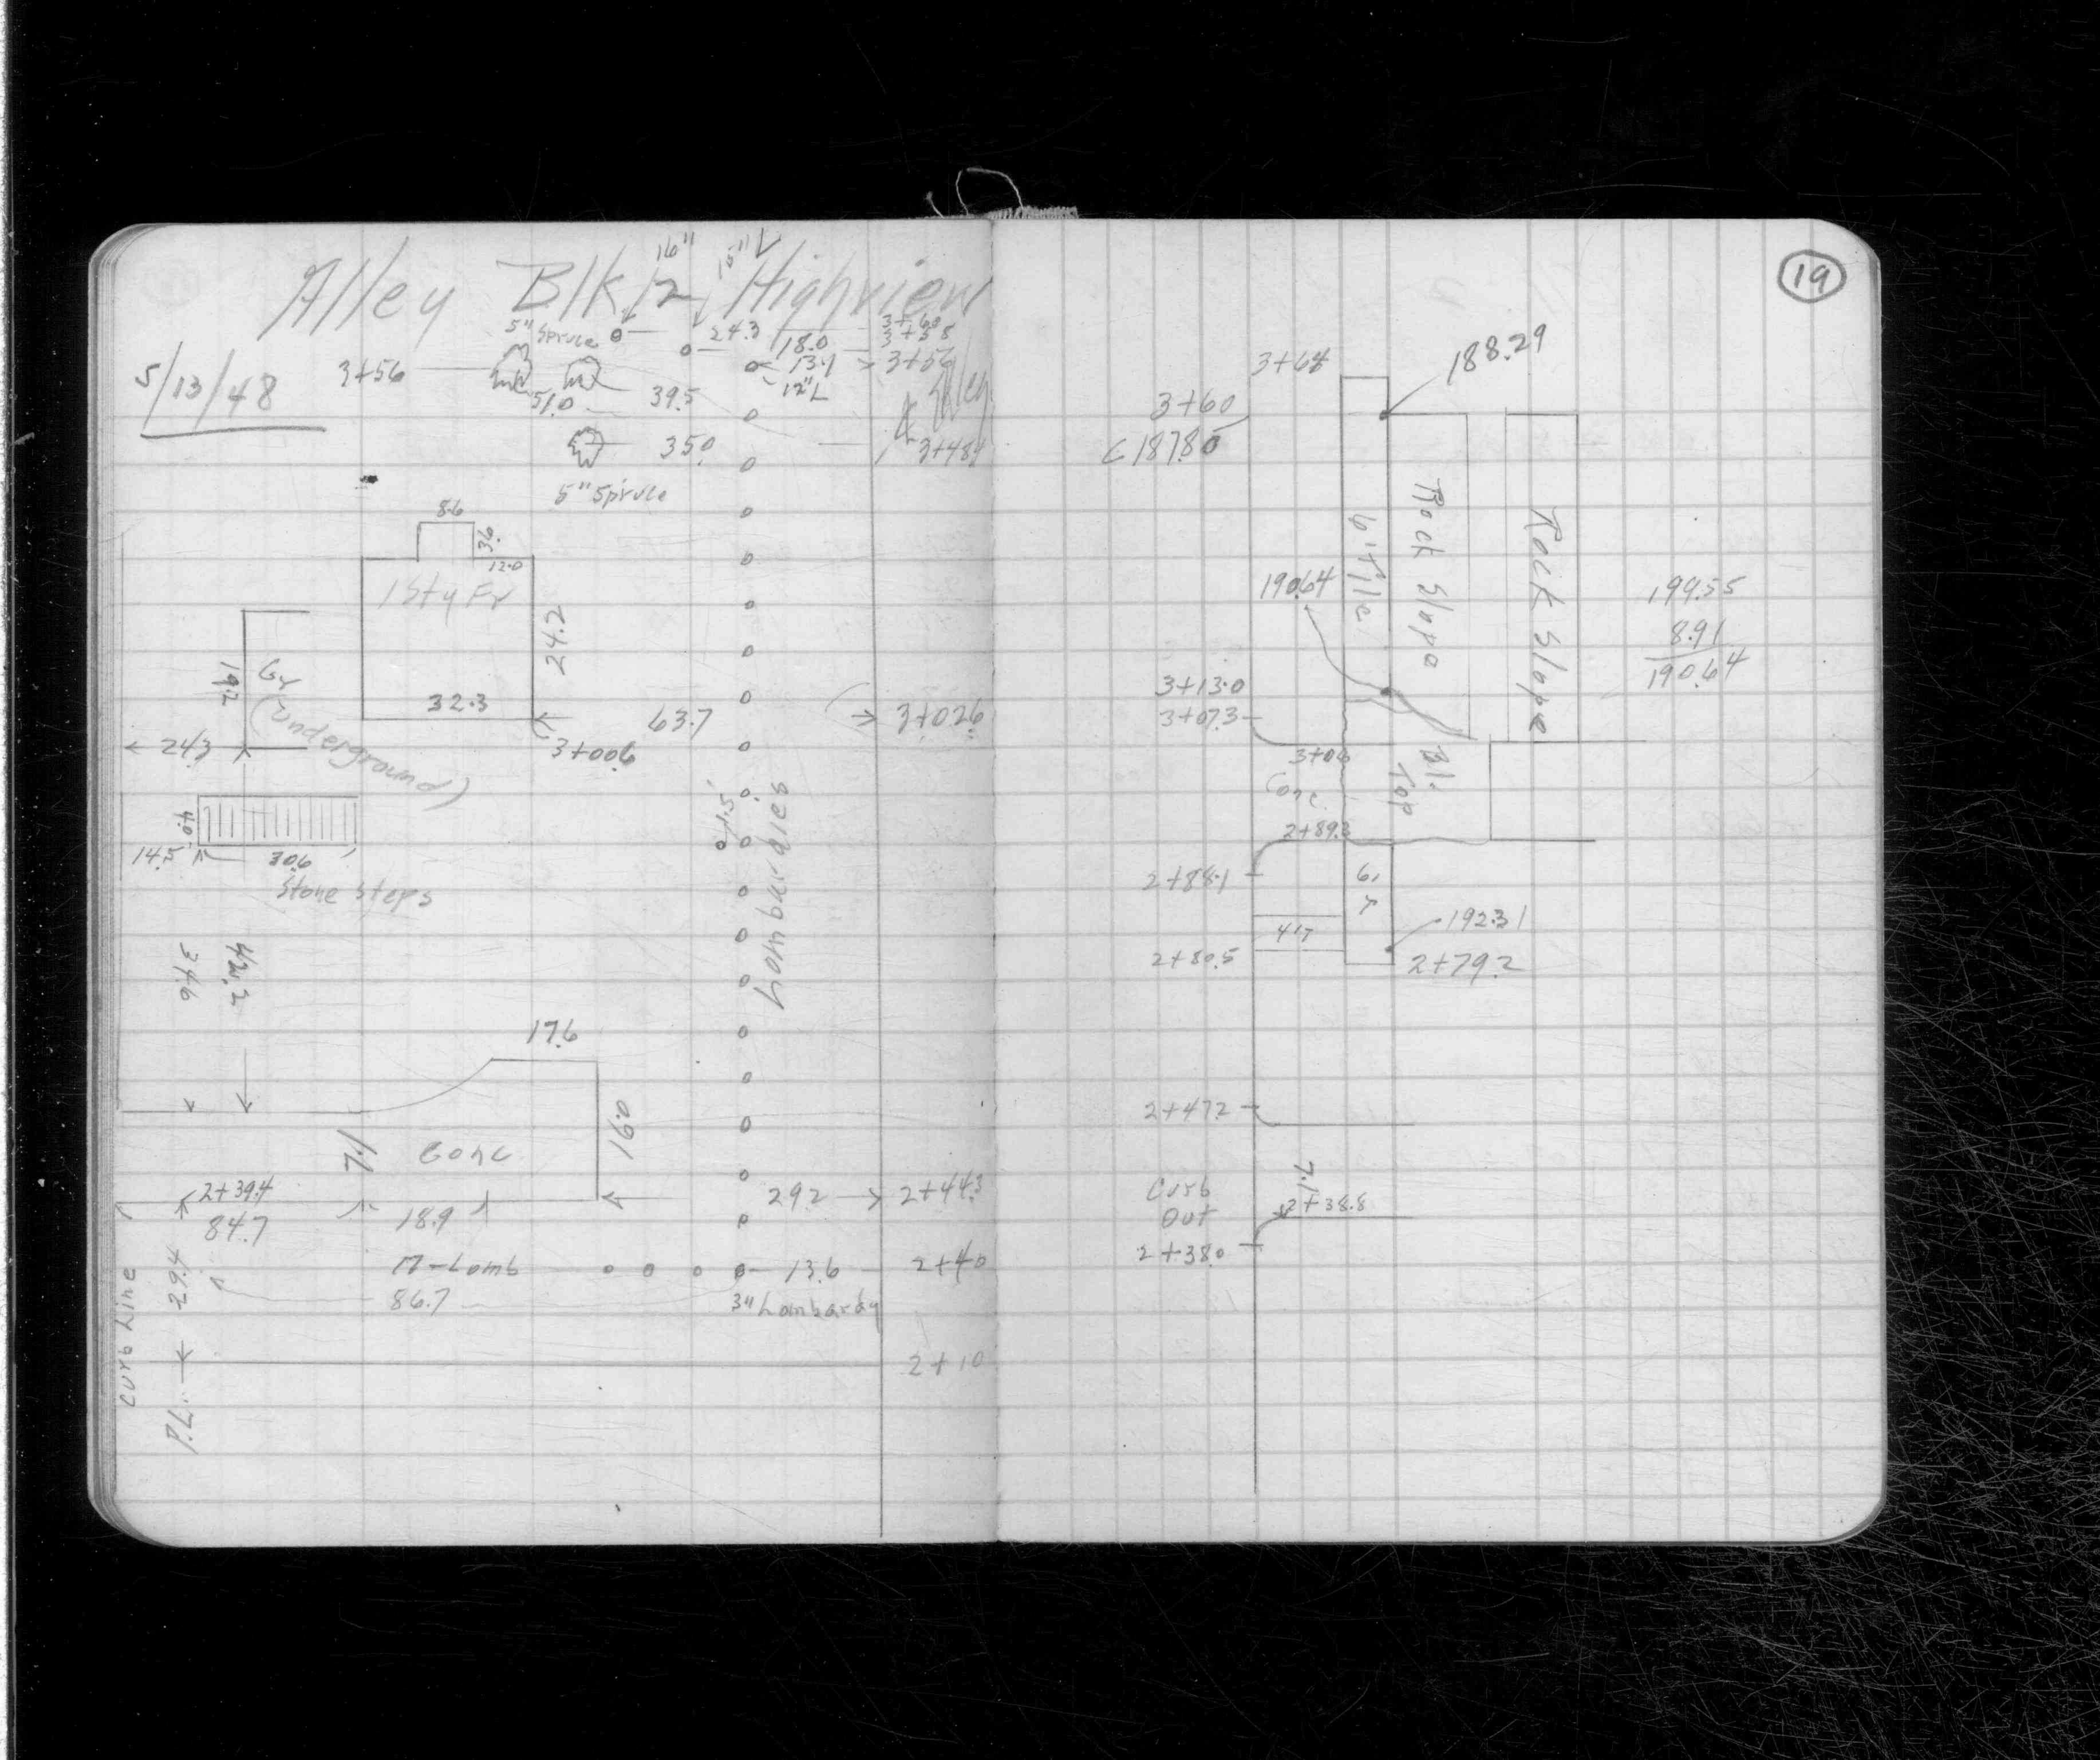 Alley Blk 2 Highview
16"
15" L
5/13/48
5" Spruce
24.3
3+60
18.0
3+58
3+56
13.4
3+56
12" L
51.0
39.5
℄ Alley
35.0
3+484
5" Spruce
8.6
3.6
12.0
1 Sty Fr
24.2
19.2
Gr
(Underground)
32.3
63.7
3+02.6
24.3
3+00.6
1.5
Lombardies
4.0
14.5
30.6
Stone Steps
34.6
42.2
17.6
16.0
7.1
Conc
2+39.4
84.7
18.9
29.2
2+44.3
17-Lomb
13.6
2+40
86.7
3" Lombardy
29.4
Curb Line
2+10
P.L.
19
3+64
188.29
3+60
C 187.80
6' Tile
Rock Slope
Rock Slope
190.64
199.55
8.91
190.64
3+13.0
3+07.3
3+06
Conc.
Bl.
Top
2+89.3
2+88.1
Gr
4'
192.31
2+80.5
2+79.2
2+47.2
7.1
Curb
Out
2+38.8
2+38.0